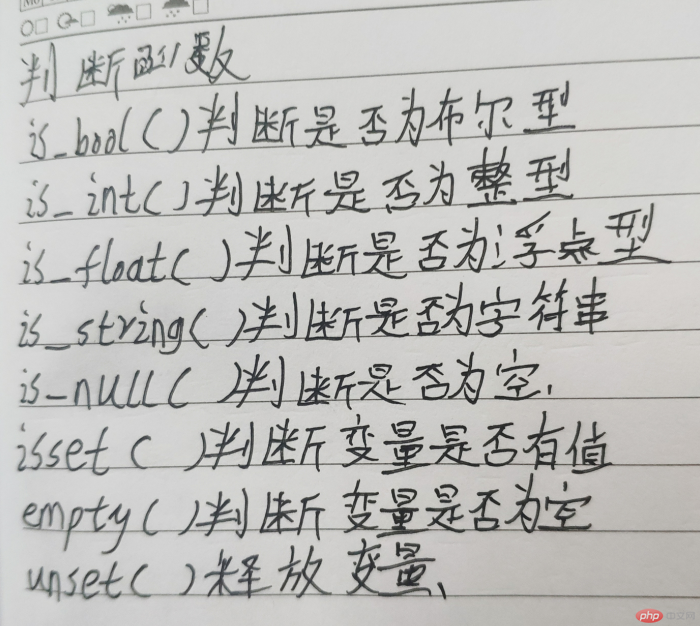 判断函数
is_bool()判断是否为布尔型
is_int()判断是否为整型
is_float()判断是否为浮点型
is_string()判断是否为字符串
is_null()判断是否为空.
isset()判断变量是否有值
empty()判断变量是否为空
unset()释放变量、
php中文网